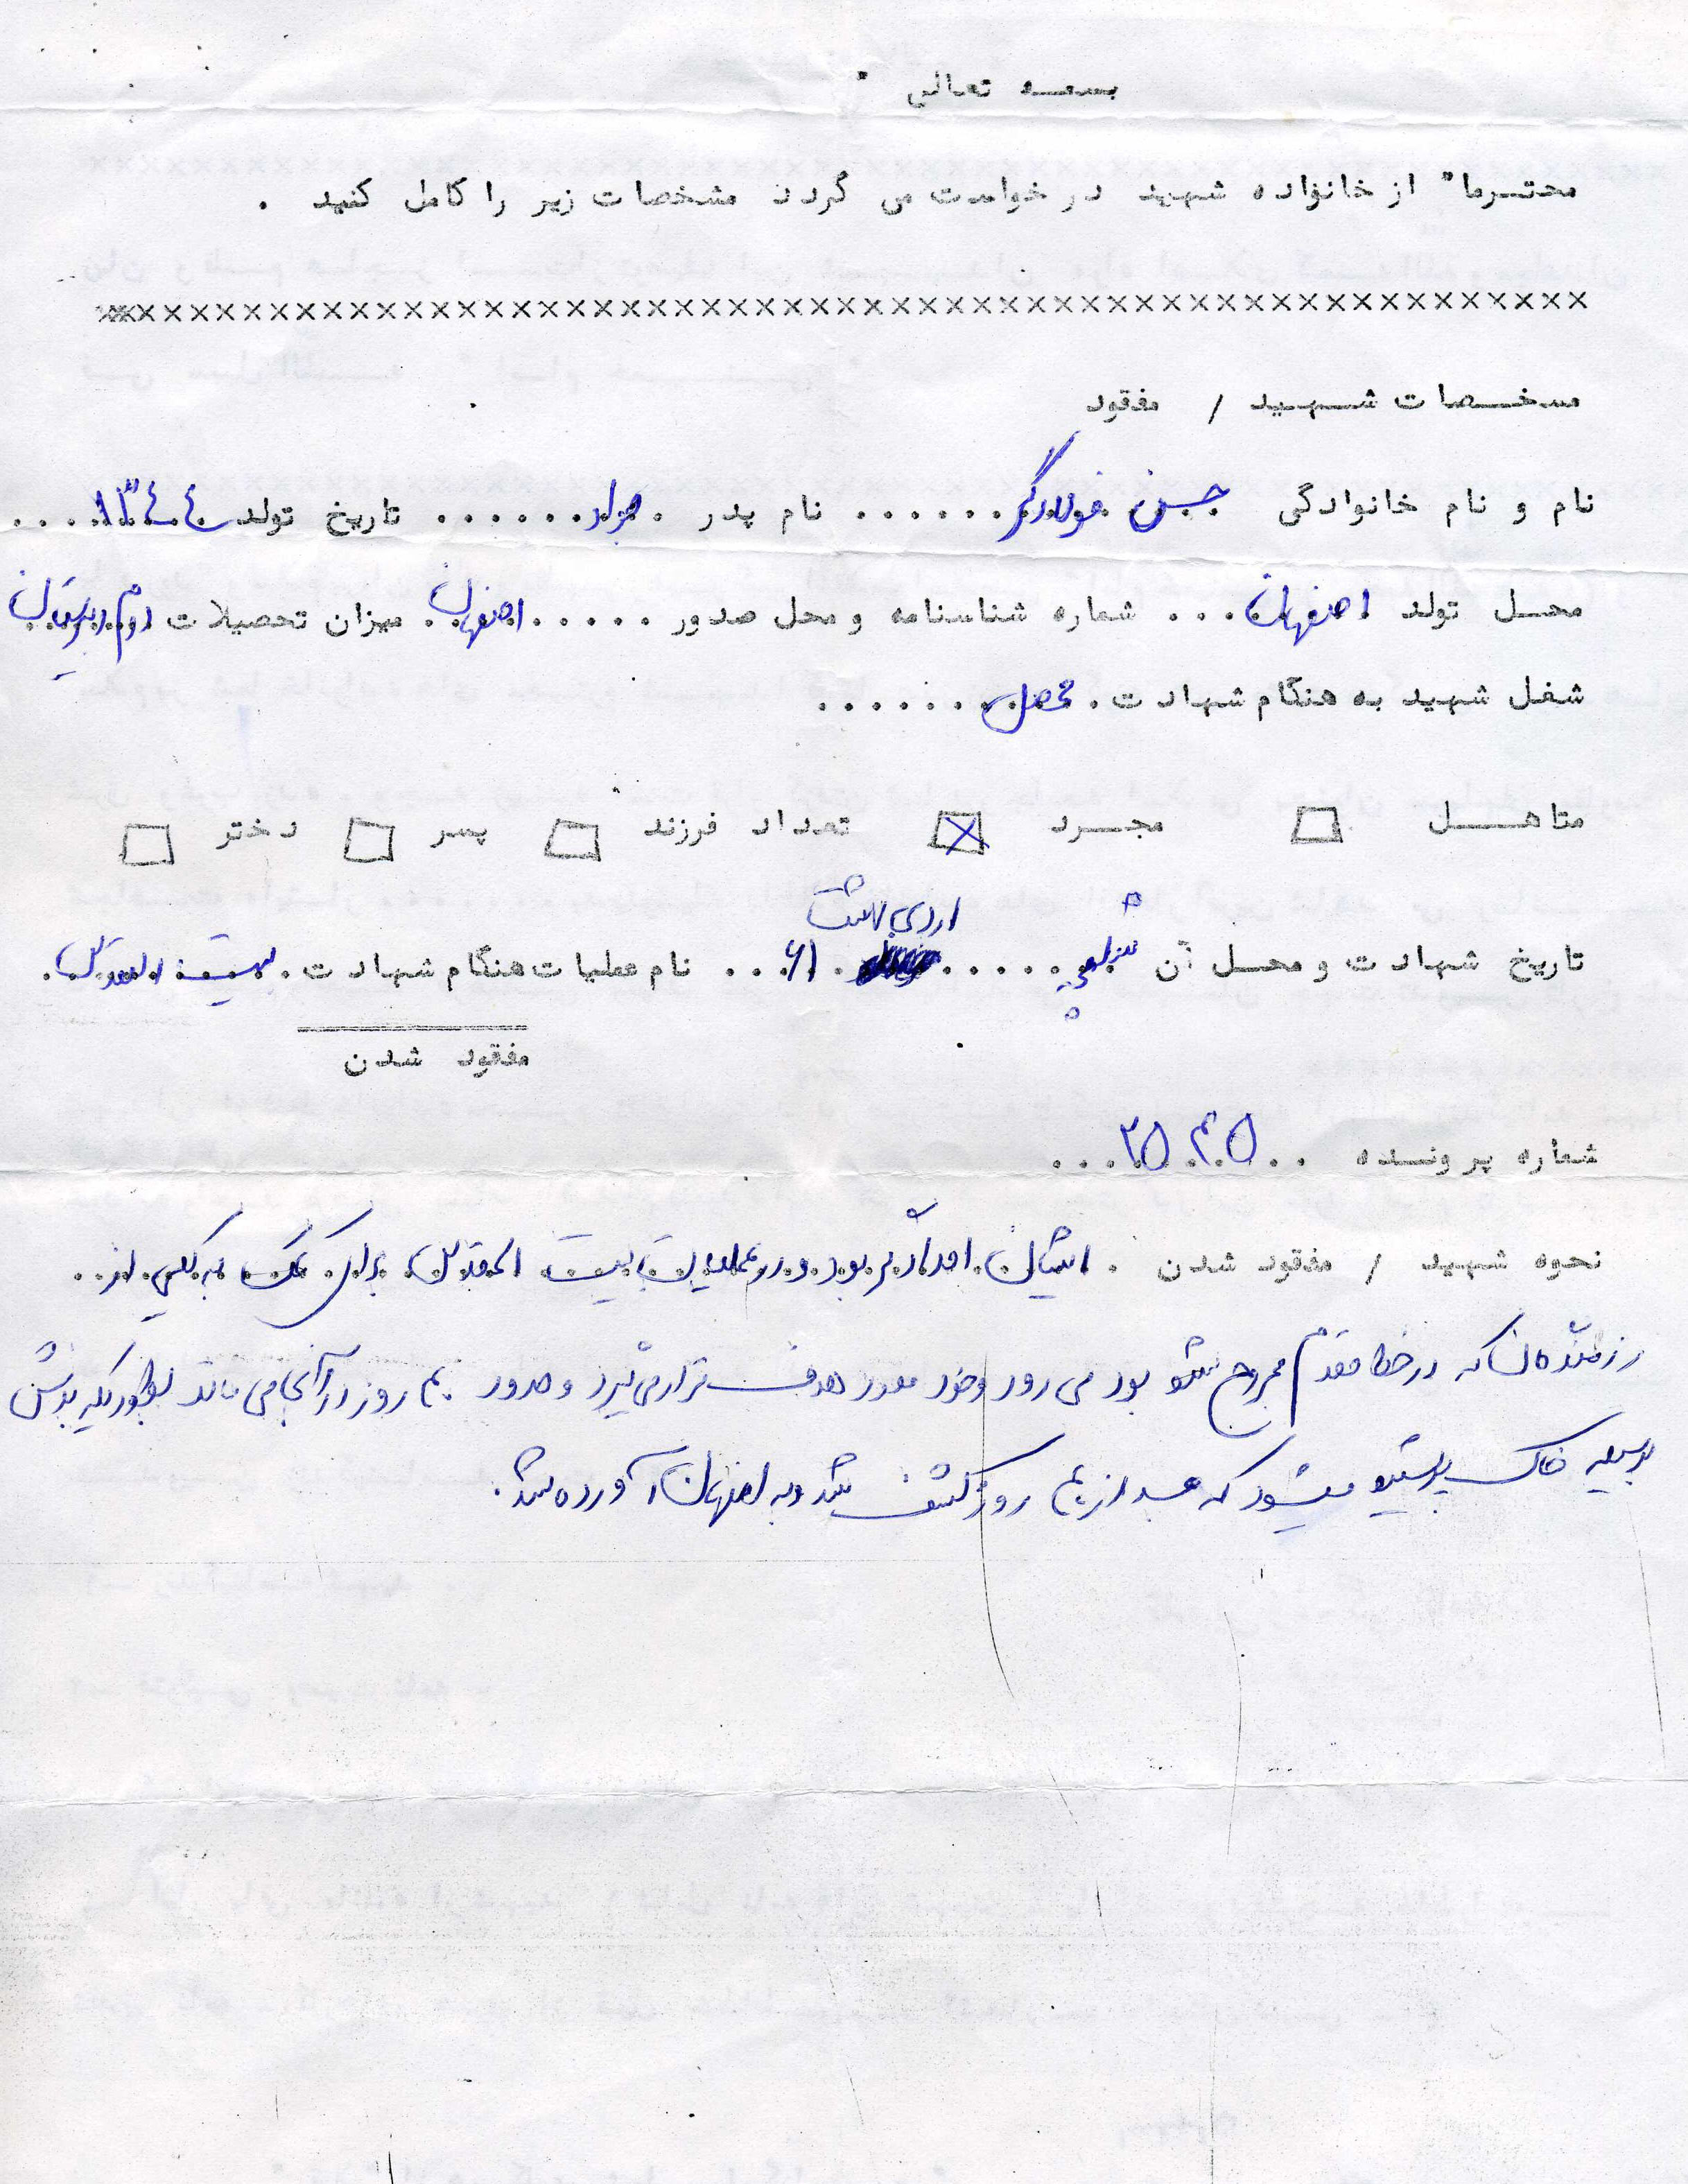 بسمه تعالی
محترما" از خانواده شهید درخواست می گردد مشخصات زیر را کامل کنید .
××××××××××××××××××××××××××××××××××××××××××××××××××××××××
مشخصات شهید / مفقود
نام و نام خانوادگی حسن فولادگر ...... نام پدر . جواد ...... تاریخ تولد ۱۳۴۴ ....
محل تولد اصفهان ... شماره شناسنامه و محل صدور ..... اصفهان . میزان تحصیلات دوم دبیرستان
شغل شهید به هنگام شهادت . محصل .......
متاهل □ مجرد ☒ تعداد فرزند □ پسر □ دختر □
اردیبهشت
تاریخ شهادت و محل آن شلمچه ..... ۶۱ ... نام عملیات هنگام شهادت . بیت المقدس .
مفقود شدن
شماره پرونده ... ۲۵۴۵ ...
نحوه شهید / مفقود شدن . ایشان امدادگر بود و در عملیات بیت المقدس برای کمک به یکی از ..
رزمنده‌ان که در خط مقدم مجروح شده بود می رود و خود مورد هدف قرار می گیرد و حدود ۴۰ روز در آنجا می ماند بطوریکه بدنش
بوسیله خاک پوشیده میشود که بعد از ۴۰ روز کشف شد و به اصفهان آورده شد.